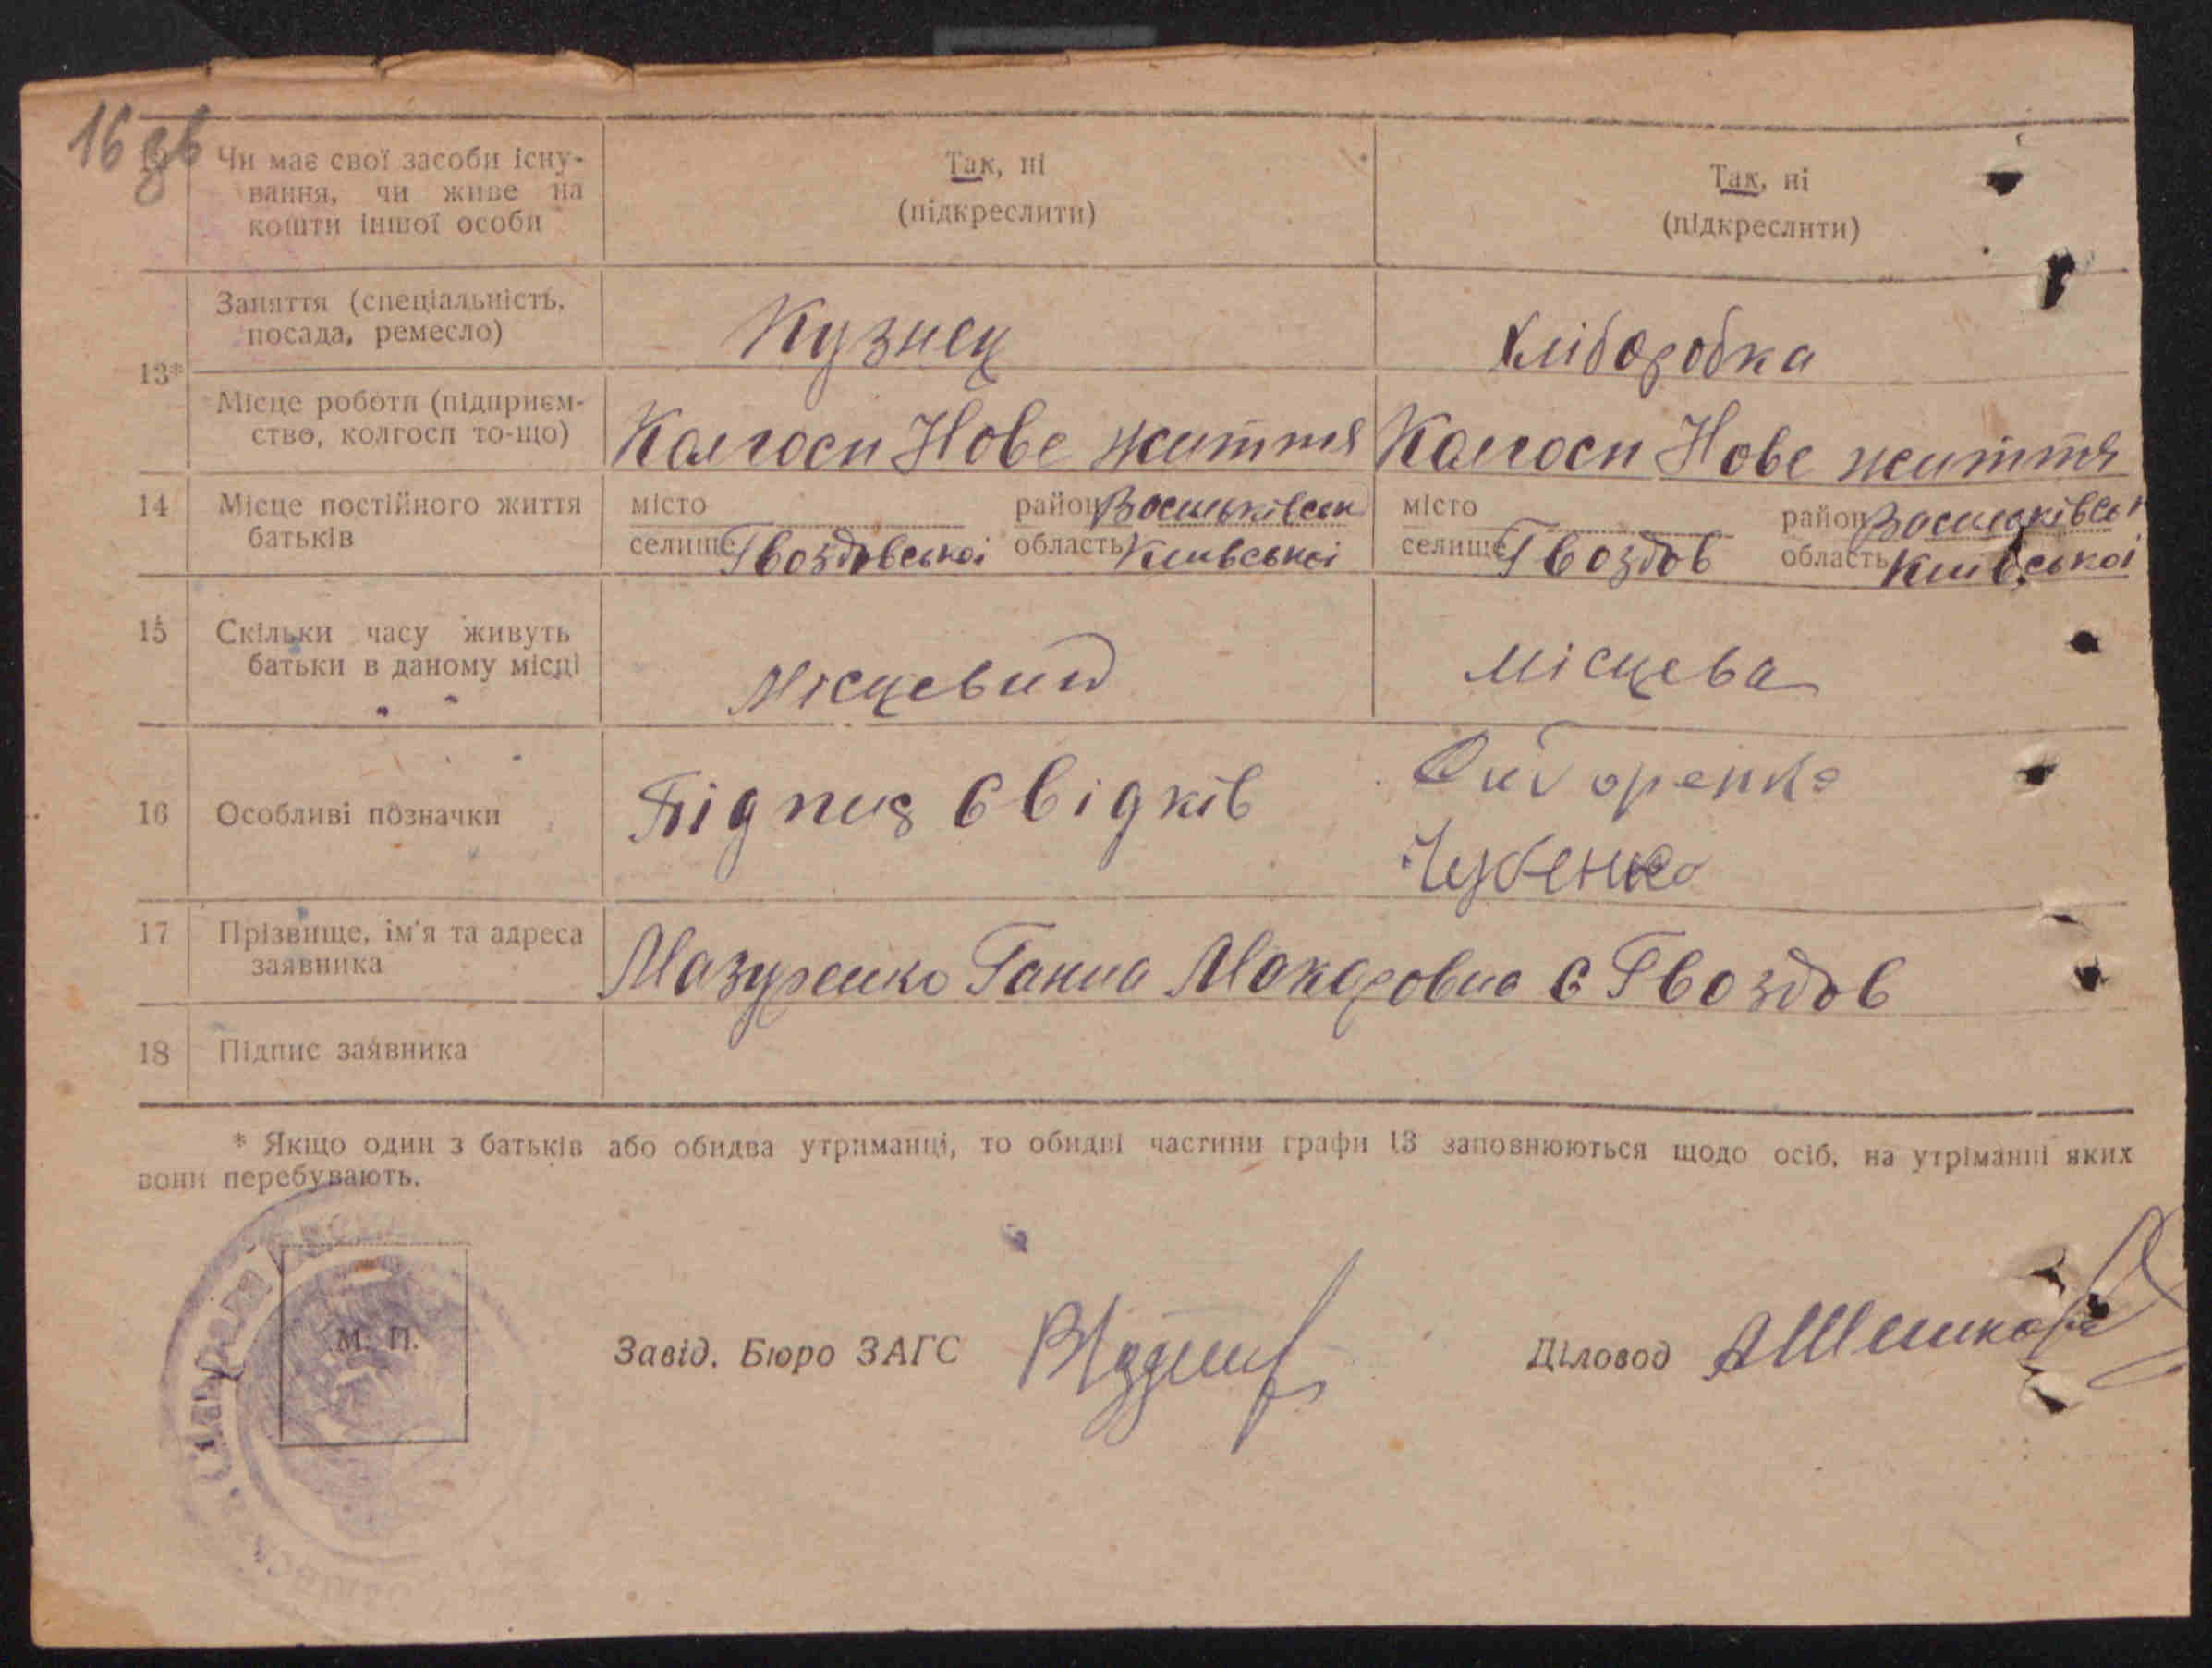 16 зв
Чи має свої засоби існу-
вання, чи живе на
кошти іншої особи
Так, ні
(підкреслити)
Так, ні
(підкреслити)
13*
Заняття (спеціальність,
посада, ремесло)
Кузнец
Хліборобка
Місце роботи (підприєм-
ство, колгосп то-що)
Колгосп Нове життя
Колгосп Нове життя
14
Місце постійного життя
батьків
місто
район Васильківськ
селище Гвоздовської область Київської
місто
район Васильківськ
селище Гвоздов область Київської
15
Скільки часу живуть
батьки в даному місці
Місцевий
місцева
16
Особливі позначки
Підпис свідків
Чубенко
17
Прізвище, ім'я та адреса
заявника
Мазуренко Ганна Макаровна с Гвоздов
18
Підпис заявника
* Якщо один з батьків або обидва утриманці, то обидві частини графи 13 заповнюються щодо осіб, на утріманні яких
вони перебувають.
М. П.
Завід. Бюро ЗАГС
Діловод